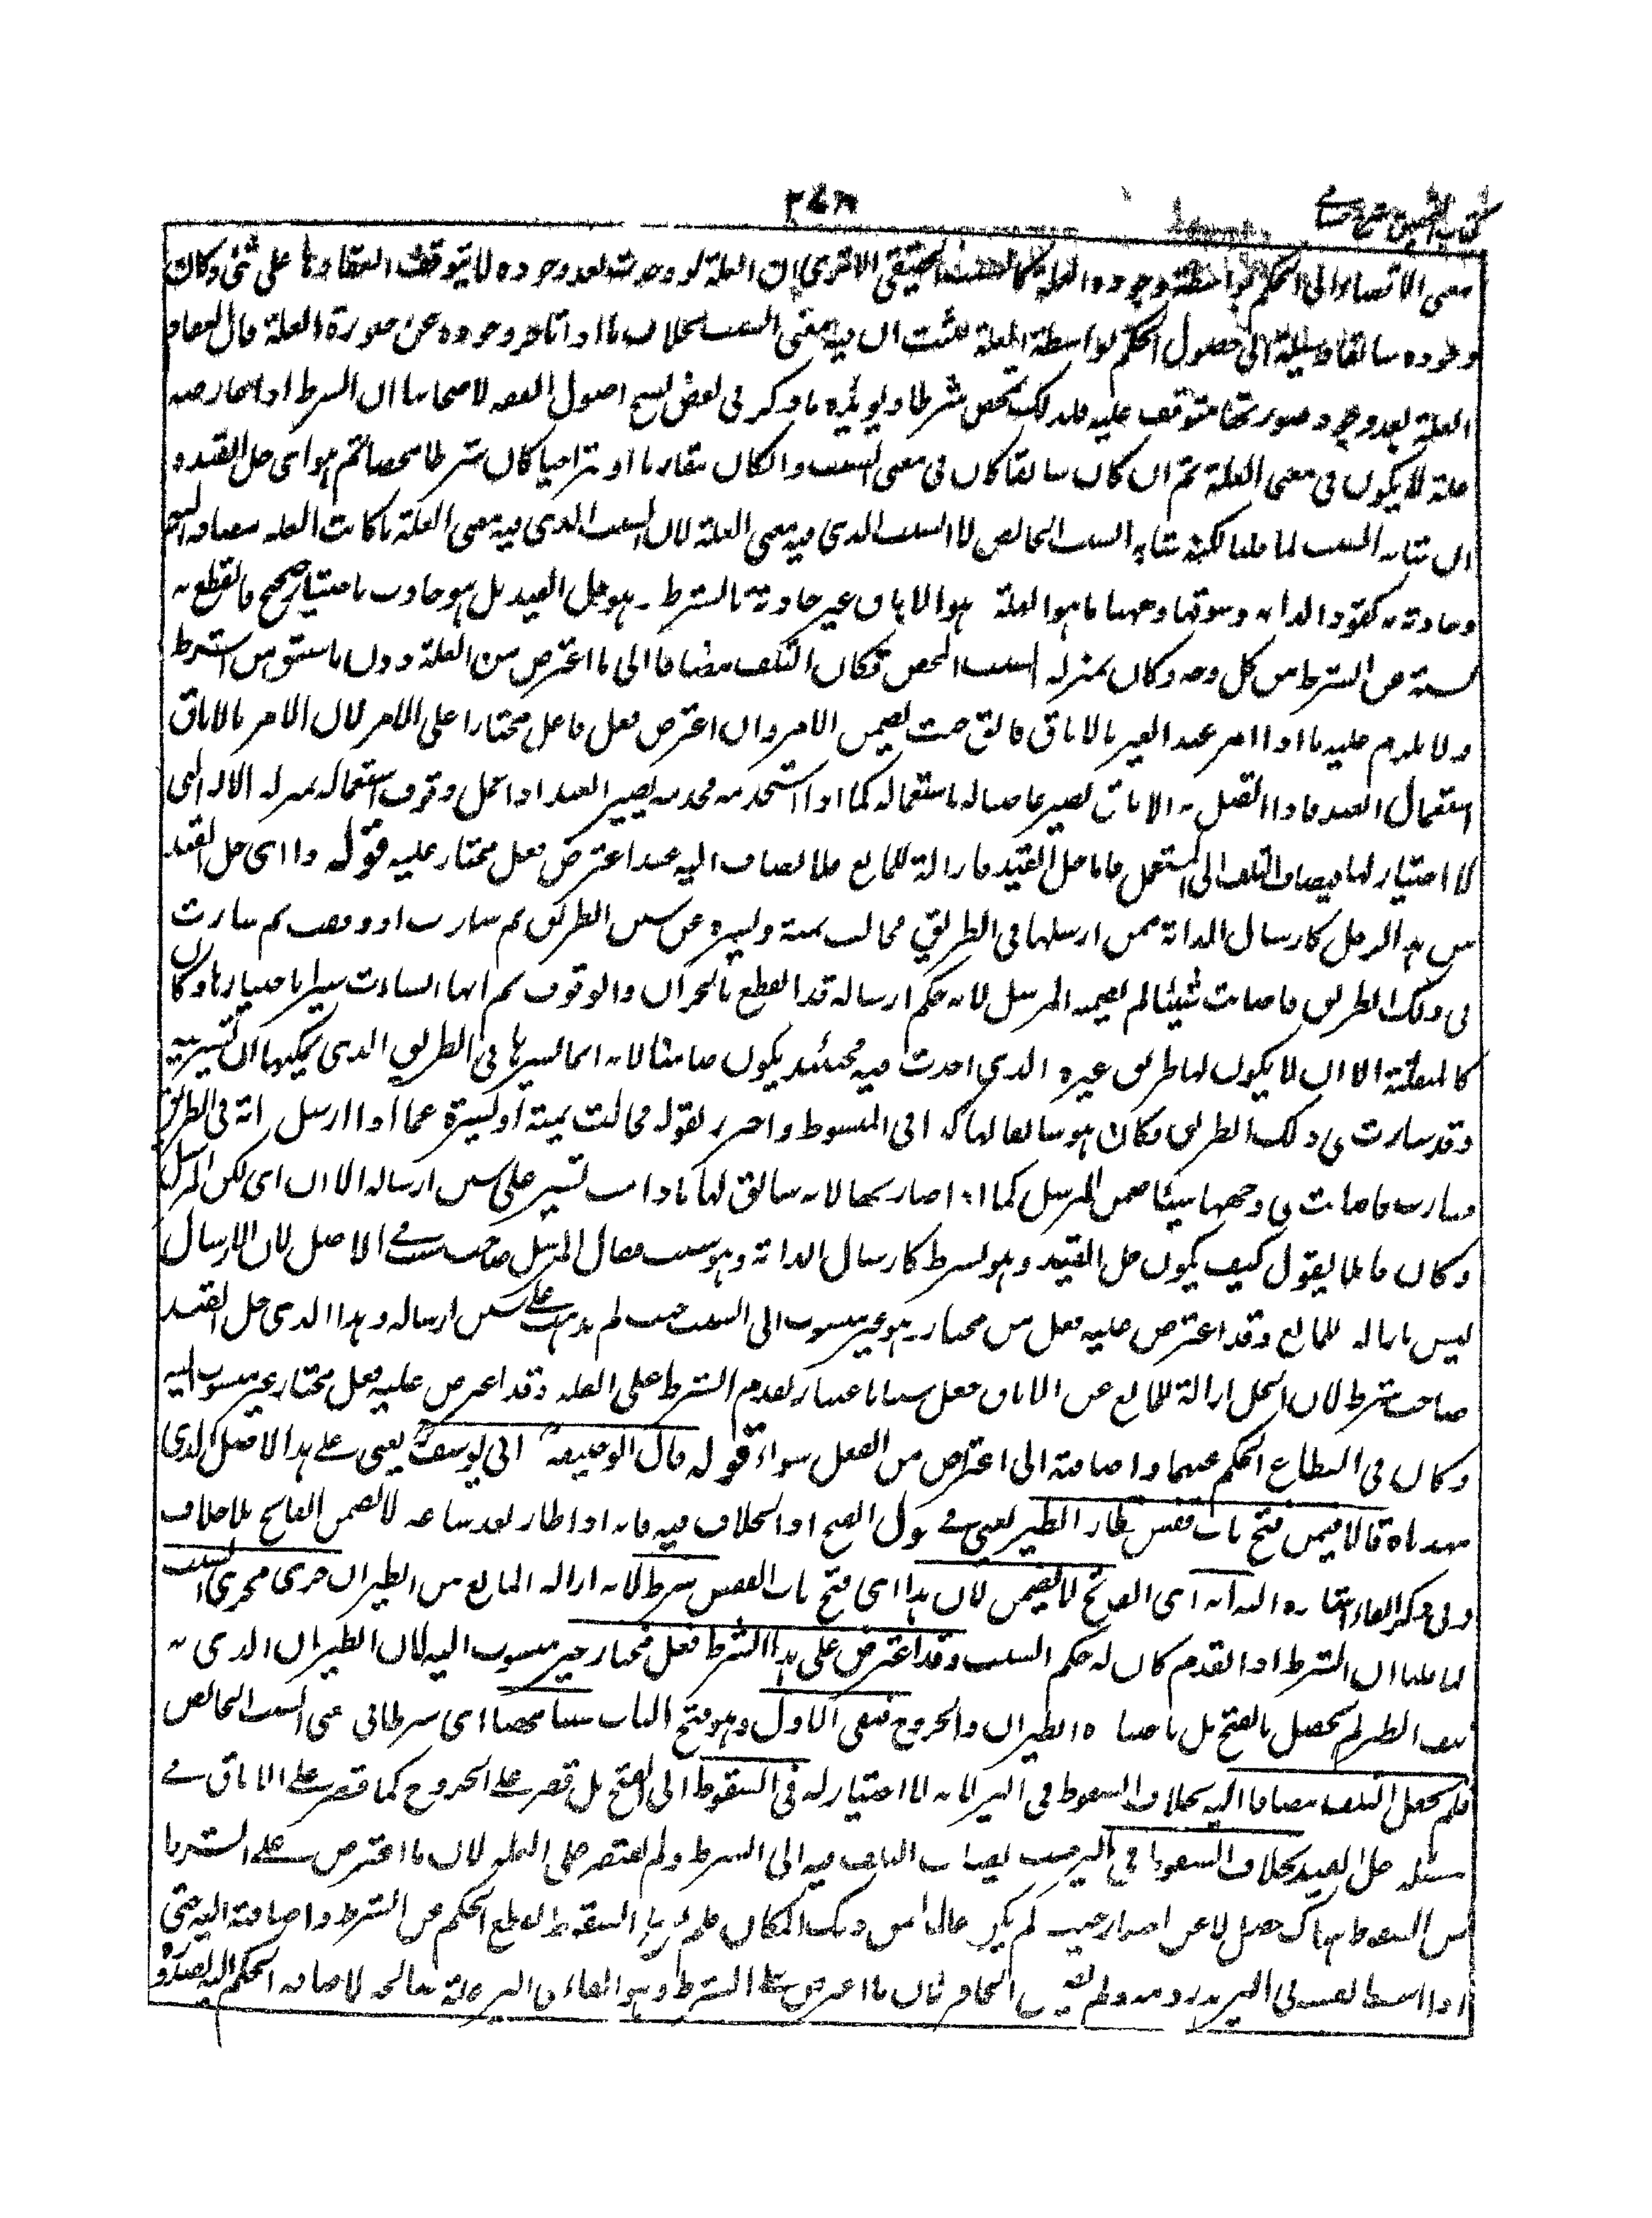 معنى الاقتضاء الى الحكم بواسطة وجوده العلة كالسبب الحقيقي الا ترى ان العلة لو وجدت بعد وجوده لا يتوقف انعقادها على شئ وكان
وجوده سابقا وسيلة الى حصول الحكم بواسطة العلة فثبت ان فيه معنى السبب بخلاف ما اذا تاخر وجوده عن صورة العلة فان انعقاد
العلة بعد وجود صورتها متوقف عليه فلذلك تمحض شرطا ويؤيده ما ذكر في بعض نسخ اصول الفقه لاصحابنا ان الشرط اذا عارضه
علة لا يكون فى معنى العلة ثم ان كان سابقا كان فى معنى السبب وان كان مقارنا او متراخيا كان شرطا محضا ثم هو اى حل القيد و
ان شابه السبب لما قلنا لكنه شابه السبب الخالص لا السبب الذى فيه معنى العلة لان السبب الذى فيه معنى العلة ما كانت العلة مضافة اليه
وحادثة به كقود الدابة وسوقها وههنا ما هو العلة هو الاباق غير حادثة بالشرط وهو حل القيد بل هو حادث باختيار صحيح فانقطع به
نسبته عن الشرط من كل وجه وكان بمنزلة السبب المحض فكان التلف مضافا الى ما اعترض من العلة دون ما سبق من الشرط
ولا يلزم عليه ما اذا امر عبد الغير بالاباق فابق حيث يضمن الامر وان اعترض فعل فاعل مختار على الامر لان الامر بالاباق
استعمال العبد فاذا اتصل به الاباق يصير غاصبا له باستعماله كما اذا استخدمه فخدمه يصير العبد اذا عمل وفق استعماله بمنزلة الالة التى
لا اختيار لها فيضاف التلف الى المستعمل فاما حل القيد فازالة للمانع فلا يضاف اليه عند اعتراض فعل مختار عليه قوله وذا اى حل القيد
من هذا الرجل كارسال الدابة فمن ارسلها فى الطريق فجالت يمنة ويسرة عن سنن الطريق ثم سارت او وقفت ثم سارت
فى ذلك الطريق فاصابت شيئا لم يضمنه المرسل لانه حكم ارساله قد انقطع بالجولان والوقوف ثم انها انشاءت سيرا باختيارها وكان
كالمنفلتة الا ان لا يكون لها طريق غيره الذى اخذت فيه فحينئذ يكون ضامنا لانه انما سيرها فى الطريق الذى يمكنها ان تسير فيه
وقد سارت فى ذلك الطريق فكان هو سائقا لها كذا فى المبسوط واحترز بقوله فجالت يمنة او يسرة عما اذا ارسل دابة فى الطريق
وسارت فاصابت فى وجهها شيئا ضمن المرسل كما اذا اصابها لانه سائق لها ما دامت تسير على سنن ارساله الا ان اى لكن المرسل
وكان قائلا يقول كيف يكون حل القيد وهو شرط كارسال الدابة وهو سبب فقال المرسل صاحب سبب فى الاصل لان الارسال
ليس بازالة للمانع وقد اعترض عليه فعل من مختار وهو غير منسوب الى السبب حيث لم يذهب على سنن ارساله وهذا الذى حل القيد
صاحب شرط لان الحل ازالة للمانع عن الاباق فجعل سببا باعتبار تقدم الشرط على العلة وقد اعترض عليه فعل مختار غير منسوب اليه
وكان فى انقطاع الحكم عنهما واضافته الى اعترض من الفعل سواء قوله قال ابو حنيفة ابى يوسف يعنى على هذا الاصل الذى
مهدناه قالا فيمن فتح باب قفص فطار الطير يعنى فى فور الفتح اذ الخلاف فيه فانه اذا طار بعد ساعة لا يضمن الفاتح بلا خلاف
وفى ذكر الفاء اشارة اليه انه اى الفاتح لا يضمن لان هذا اى فتح باب القفص شرط لانه ازالة المانع من الطيران جرى مجرى السبب
لما قلنا ان الشرط اذا تقدم كان له حكم السبب وقد اعترض على هذا الشرط فعل مختار غير منسوب اليه لان الطيران الذى به
تلف الطير لم يحصل بالفتح بل باختياره الطيران والخروج فبقى الاول وهو فتح الباب سببا محضا اى شرطا فى معنى السبب الخالص
فلم يجعل التلف مضافا اليه بخلاف السقوط فى البير لانه لا اختيار له فى السقوط الى الفتح بل قصر على الخروج كما قصر على الاباق فى
مسئلة حل القيد بخلاف السقوط فى البير حيث يضاف التلف فيه الى الشرط ولم يقتصر على العلة لان ما اعترض على الشرط
من السقوط هناك حصل لا عن اختيار حيث لم يكن عالما بعمق ذلك المكان فلم يؤثر السقوط لقطع الحكم عن الشرط واضافته اليه حتى
اذا اسقط نفسه فى البير هدر دمه ولم يضمن الحافر لان ما اعترض على الشرط وهو القاء فى البير علة صالحة لاضافة الحكم اليه لصدوره